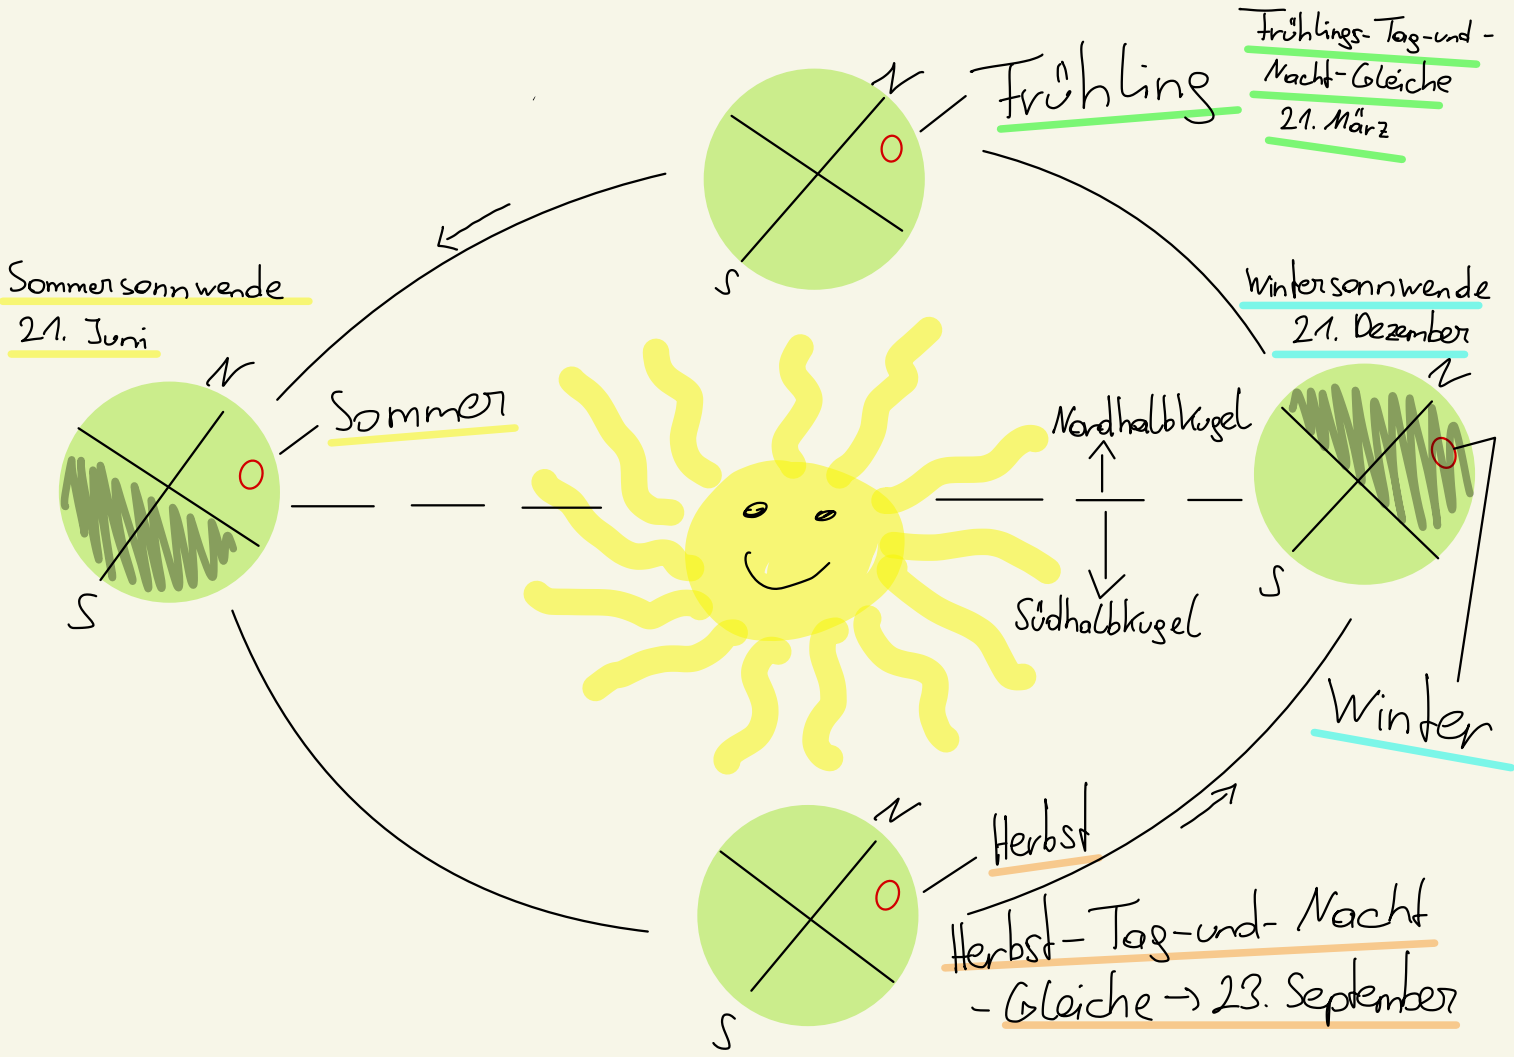 Frühlings-Tag-und-
Nacht-Gleiche
21. März
Frühling
N
S
Sommersonnwende
21. Juni
N
Sommer
S
Wintersonnwende
21. Dezember
N
S
Nordhalbkugel
Südhalbkugel
Winter
N
Herbst
S
Herbst-Tag-und-Nacht
-Gleiche → 23. September